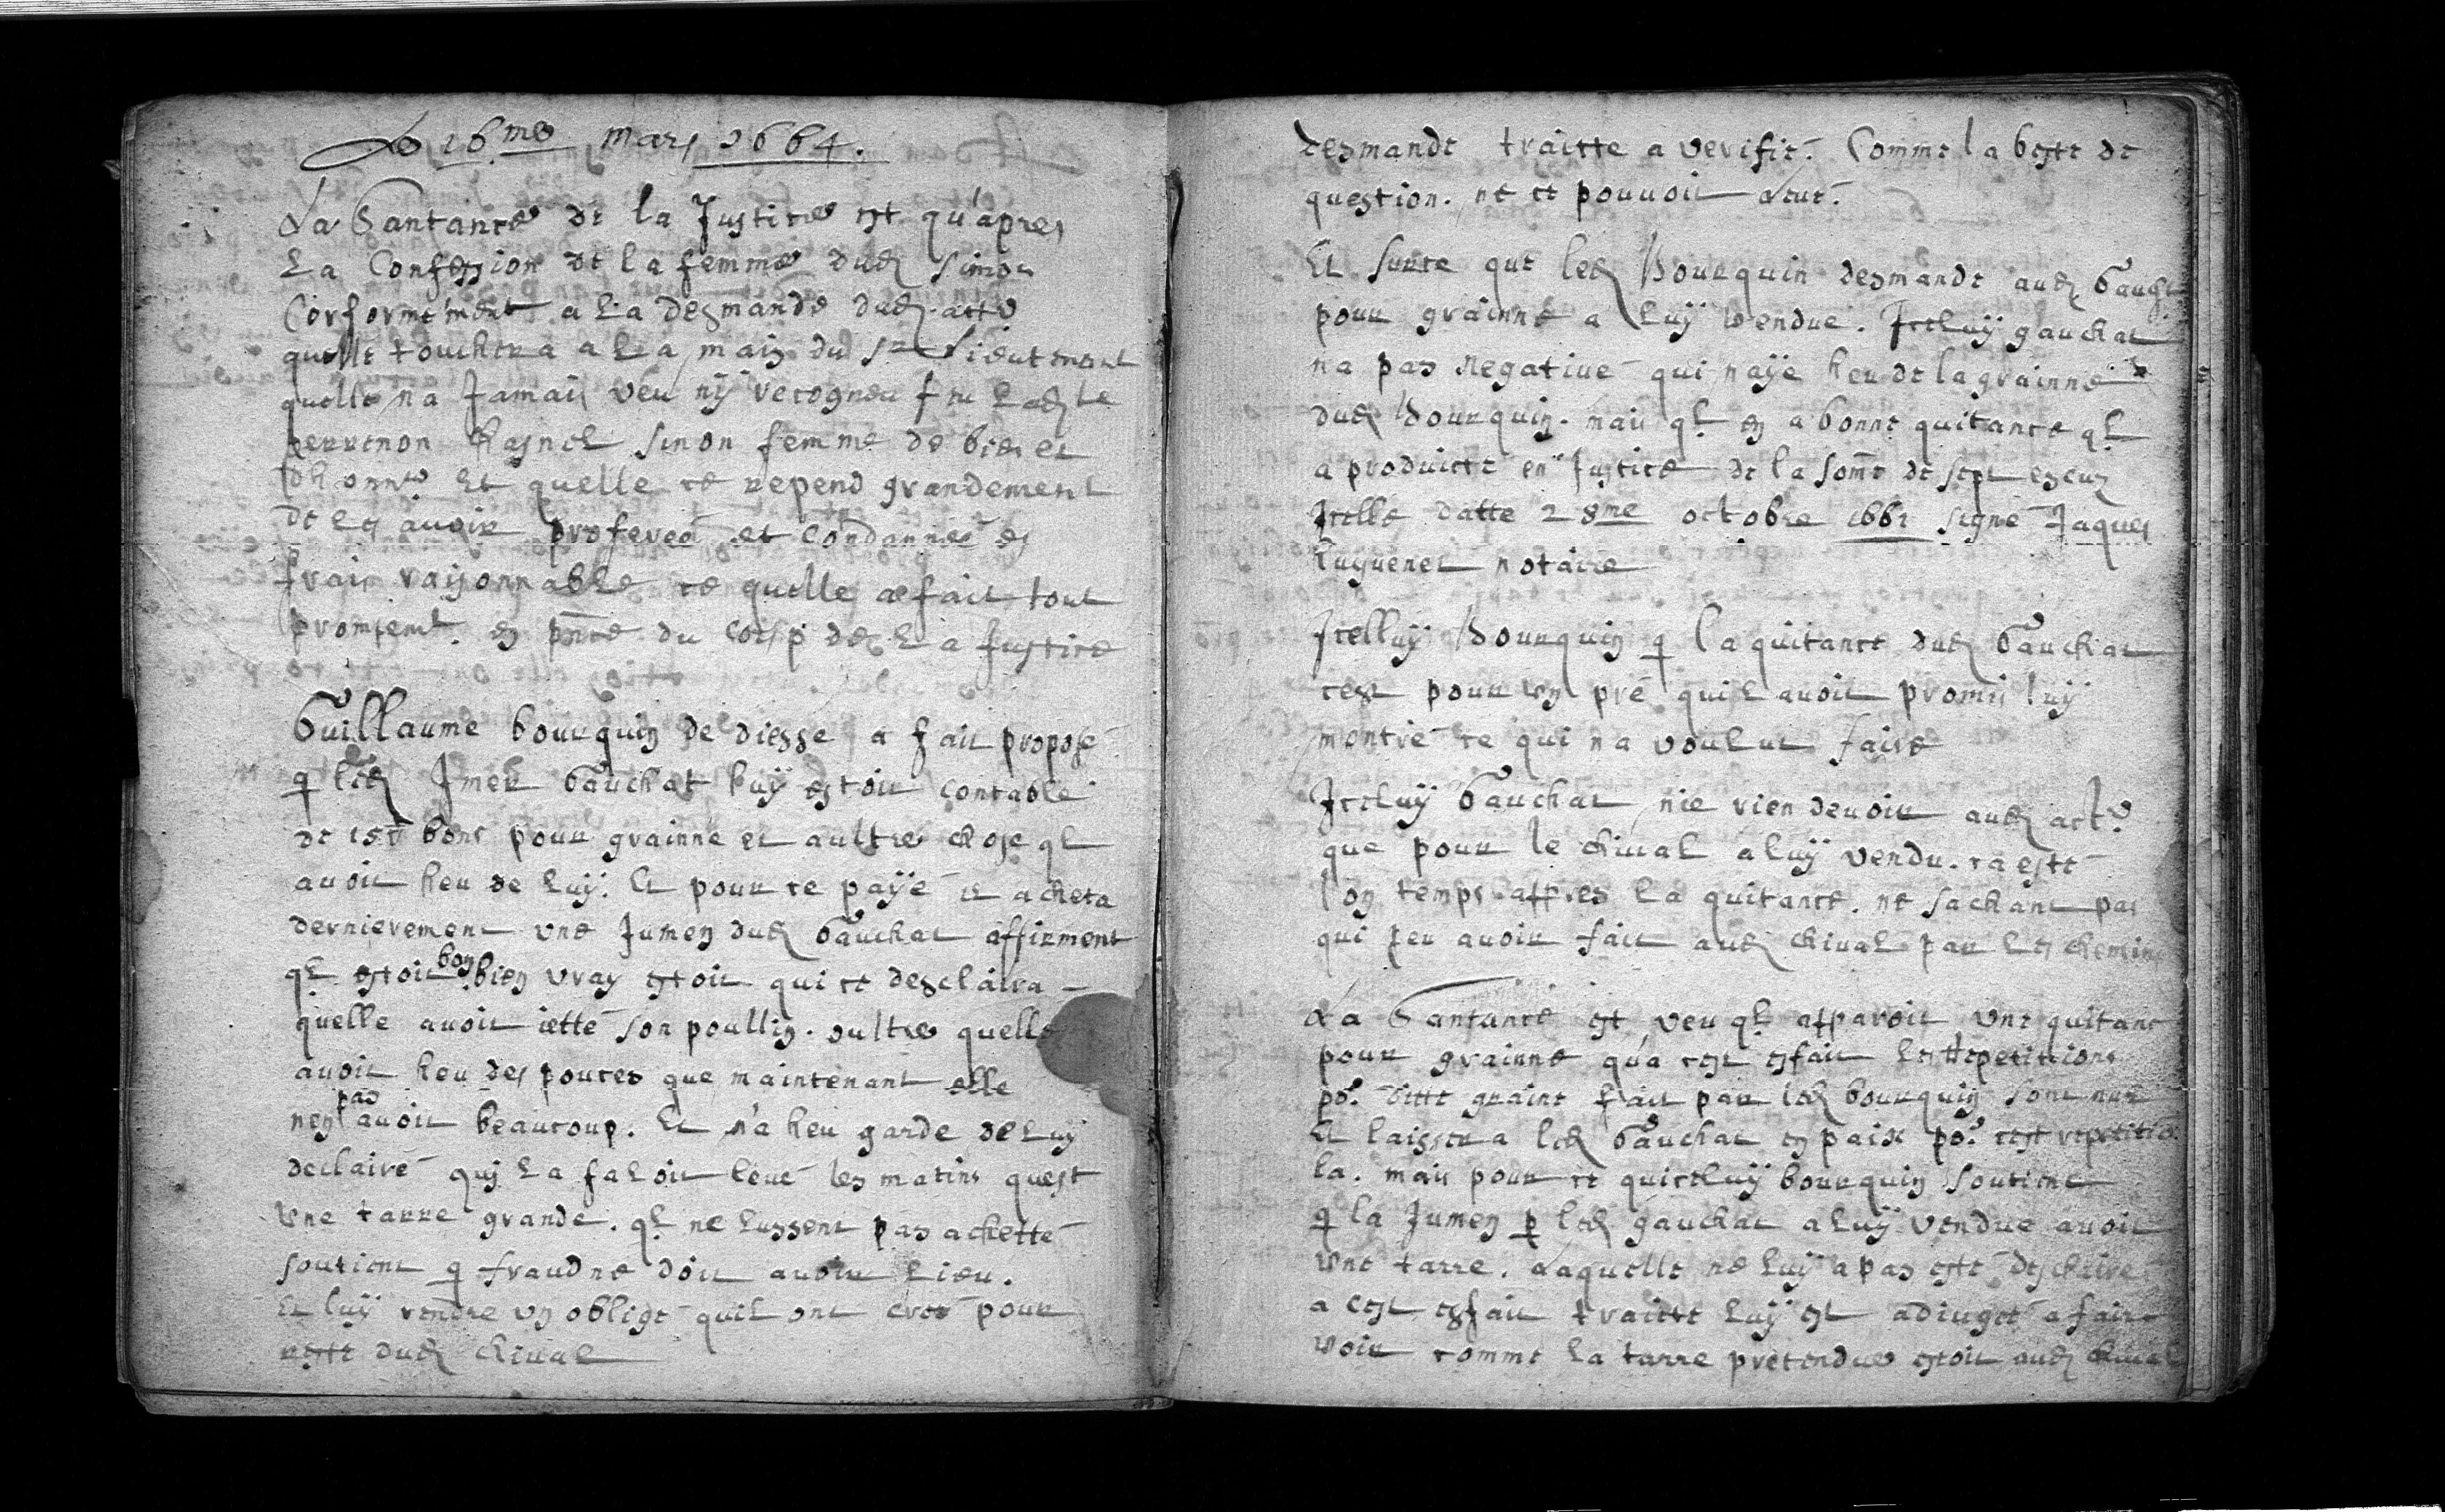 Le 16.me Mars 1664.
La Santance de la Justice est qu'apres
La Confession de la femme dud. Simon
Conformement a La desmande dud. acte
quelle touchera a La main du Sr Lieutenant
quelle na Jamais veu nÿ recogneu
perrenon femme de bien et
dhonne.r Et quelle ce repend grandement
de Les avoir proferee et Condannee es
frais raisonnable ce quelle a fait tout
promtemt. en pnce du Corps de La Justice
Guillaume bourquin de diesse a fait propose
q led. Imer Gauchat luÿ estoit contable
de 15 bons pour grainne et aultre chose ql
avoit heu de luÿ. Et pour ce paÿe il acheta
dernierement une Jumen dud. Gauchat affirment
ql estoit bon bien vray estoit qui ce desclaira
quelle avoit iette son poullin. oultre quelle
avoit heu des pouces que maintenant elle
nen pas avoit beaucoup. Et n'a heu garde de Luy
declaire quj La faloit leue les matins quest
une tarre grande. ql ne Lussent pas achette
soutient q fraud ne doit avoir Lieu.
Et luÿ rendre un oblige quil ont cree pour
reste dud. chival
desmande traitte a verifie. Comme la beste de
question. ne ce pouvoit Leue.
Et surce que led. Bourquin desmande aud. Gauchat
pour grainne a Luÿ vendue. Icelluÿ gauchat
na pas negative qui naÿe heu de la grainne
dud. Bourquin. mais ql en a bonne quitance ql
a produicte en Justice de la some de sept escuz
Icelle datte 28me octobre 1661 signe Jaques
huguenet notaire
Icelluÿ Bourquin q la quitance dud. Gauchat
cest pour un pre quil avoit promis luÿ
montre ce qui na voulut faire
Icelluÿ Gauchat nie rien devoir aud. act.r
que pour le chival a luÿ vendu. ca este
lon temps apprez La quitance. ne sachant pas
qui peu avoir fait aud. chival par Les chemins
La Santance est veu ql apparoit une quitance
pour grainne qu'a cest esfait Les repetitions
po.r ditte graine fait par led. bourquin sont nul
Et laissera led. Gauchat en paix po.r cest repetition
la. mais pour ce quicelluÿ bourquin soutient
q la Jumen p led. gauchat a luÿ vendue avoit
une tarre. Laquelle ne luÿ a pas este desclaire
a cest esfait traitte luÿ est adiuge a faire
voir comme La tarre pretendue estoit aud. chival